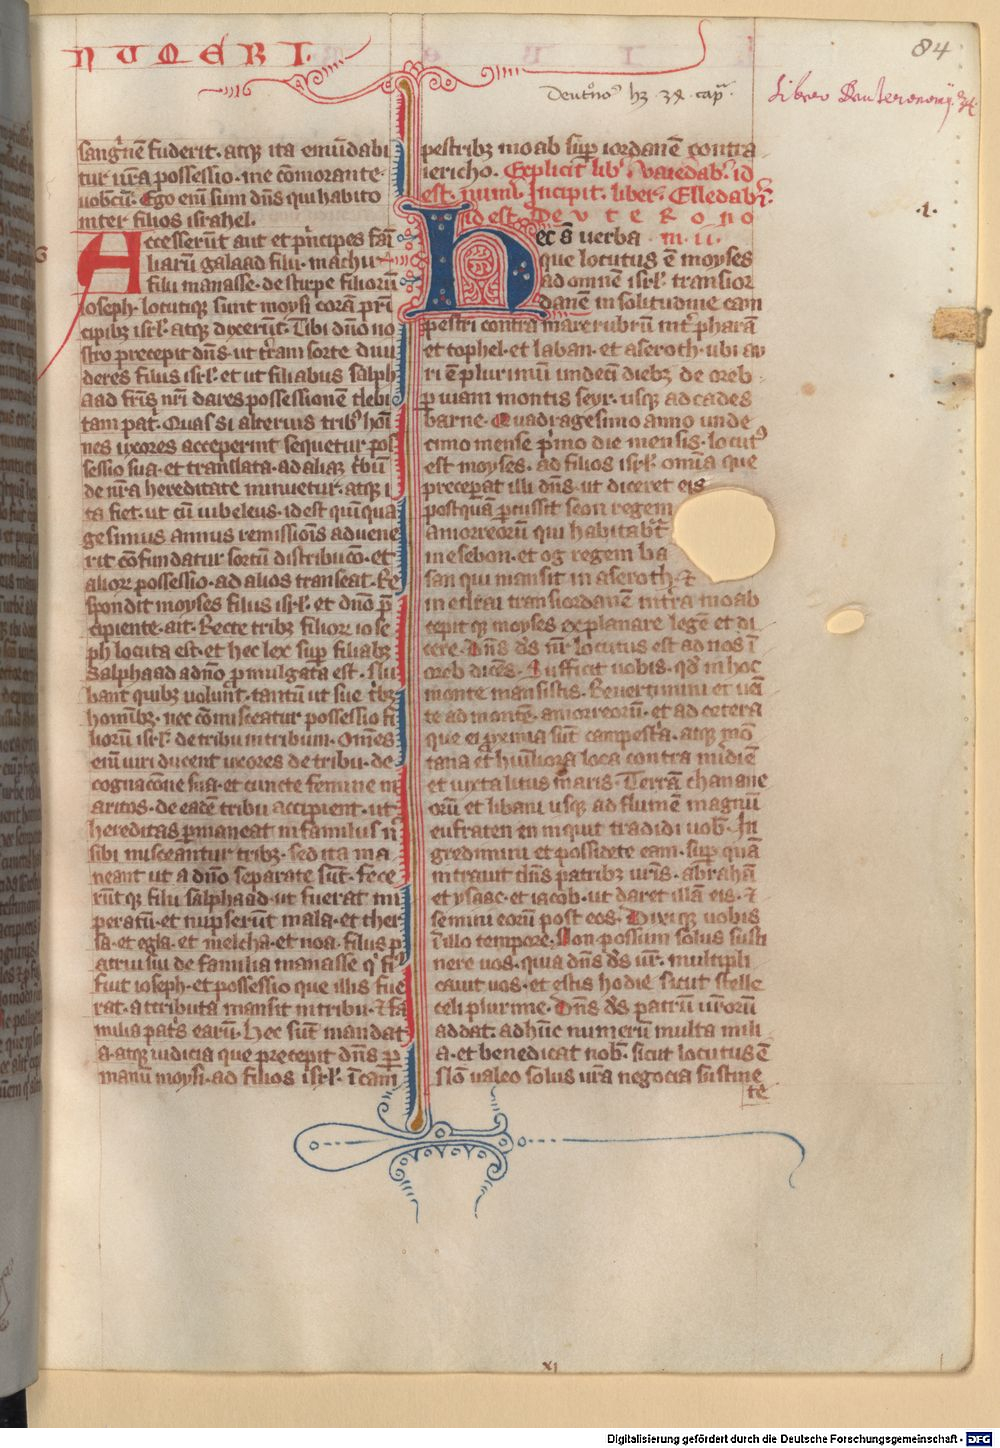 NUMERI.
84
Deut͛no᷒ hꝫ 34 cap͛.
Libro Deuteronomij. 34
sangⁱnē fuderit. atqꝫ ita emūdabi
tur ur̄a possessio. me cōmorante
uobcū. Ego eni sum dn̄s qui habito
inter filios israhel.
Accesserūt aut et pⁱncipes fāi
liarū galaad filii. machir
filii manasse. de stirpe filiorū
ioseph. locutiqꝫ sunt moysi corā prī
cipibꝫ isrl. atqꝫ dixerūt. Tibi dn̄o no
stro precepit dn̄s. ut tr̄am sorte diui
deres filiis isrl. et ut filiabus salph
aad frīs nr̄i dares possessionē debi
tam patⁱ. Quas si alterius tribꝰ hoī
nes uxores acceperint sequetur pos
sessio sua. et translata. ad aliaꝫ tⁱbū
de nr̄a hereditate minuetur. atqꝫ i
ta fiet. ut cū iubeleus. id est quīqua
gesimus annus remissiōis aduene
rit cōfundatur sortiū distribucō. et
alioꝝ possessio. ad alios transeat. Re
spondit moyses filiis isrl. et dn̄o p̄
cipiente. ait. Recte tribꝫ filioꝝ iose
ph locuta est. et hec lex suꝑ filiabꝫ
salphaad a dn̄o ꝓmulgata est. Nu
bant quibꝫ uolunt. tantū ut sue tⁱbꝫ
homībꝫ. nec cōmisceatur possessio fi
liorū isrl. de tribu in tribum. Om̄es
eni uiri ducent uxores de tribu. de
cognacōne sua. et cuncte femine m
aritos. de eadē tribu accipient. ut
hereditas ꝑmaneat in familiis n̄
sibi misceantur tribꝫ. sed ita ma
neant ut a dn̄o separate sūt. fece
rūtqꝫ filii salphaad. ut fuerat im
peratū. et nupserūt mala. et ther
sa. et egla. et melcha. et noa. filiis p
atrui sui de familia manasse qⁱ fi
fuit ioseph. et possessio que illis fue
rat. attributa mansit in tribu. et fa
milia patⁱs earū. Hec sūt mandat
a. atqꝫ iudicia que precepit dn̄s ꝑ
manū moysi. ad filios isrl. ī cam
pestribꝫ moab suꝑ iordanē contra
iericho. Explicit lib̕ Vaiedab̕. id
est. num̄i. Incipit. liber. Elledab̕r̄.
id est DEUTERONO
MII.
Hec s̄ uerba
que locutus ē moyses
ad omnē isrl. transior
danē in solitudine cam
pestri contra mare rubrū int̕ pharā
et tophel. et laban. et aseroth. ubi au
ri ē plurimū undeci diebꝫ de oreb
ꝑ uiam montis seyr. usqꝫ ad cades
barne. Quadragesimo anno unde
cimo mense pⁱmo die mensis. locutꝰ
est moyses. ad filios isrl. omīa que
preceperat illi dn̄s. ut diceret eis
postquā ꝑcussit seon regem
amorreorū qui habitabat
in esebon. et og regem ba
san qui mansit in aseroth. et
in edrai transiordanē in tr̄a moab
cepitqꝫ moyses explanare legē et di
cere. Dn̄s ds̄ nr̄ locutus est ad nos ī
oreb dicēs. Sufficit uobis. qd̕ in hoc
monte mansistis. Reuertimini et ueī
te ad montē. amorreorū. et ad cetera
que ei ꝓxima sūt campestⁱa. atqꝫ mō
tana et hūiliora loca contra midiē
et iuxta litus maris. Terrā chanane
orū et libani usqꝫ ad flumē magnū
eufraten en inquit tradidi uob̕. In
gredimini et possidete eam. suꝑ quā
iurauit dn̄s patribꝫ ur̄is. abrahā
et ysaac. et iacob. ut daret illā eis. et
semini eorū post eos. Dixiqꝫ uobis
ī illo tempore. Non possum solus susti
nere uos. quia dn̄s ds̄ ur̄. multipli
cauit uos. et estis hodie sicut stelle
celi plurime. Dn̄s ds̄ patrū ur̄orū
addat. ad hūc numerū multa mili
a. et benedicat uob̕. sicut locutus ē
Nō ualeo solus ur̄a negocia sustine
re
.1.
xi
Digitalisierung gefördert durch die Deutsche Forschungsgemeinschaft - DFG